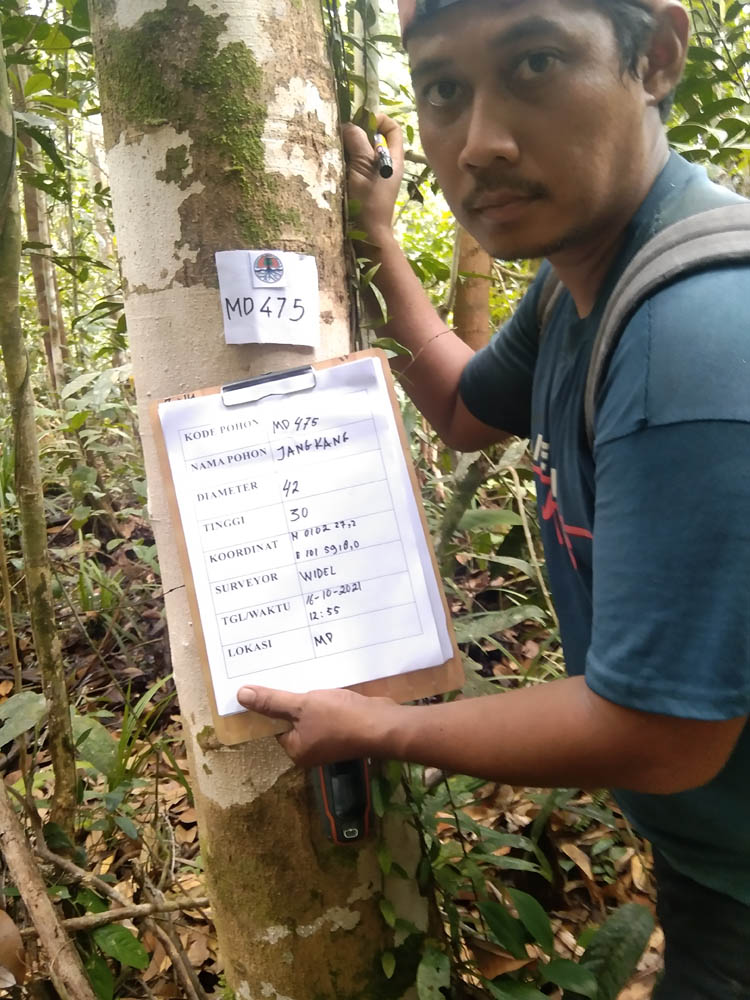 MD 475
KODE POHON MD 475
NAMA POHON JANGKANG
DIAMETER 42
TINGGI 30
KOORDINAT N 0102 27,2
E 101 5918,0
SURVEYOR WIDEL
TGL/WAKTU 16-10-2021
12:55
LOKASI MD